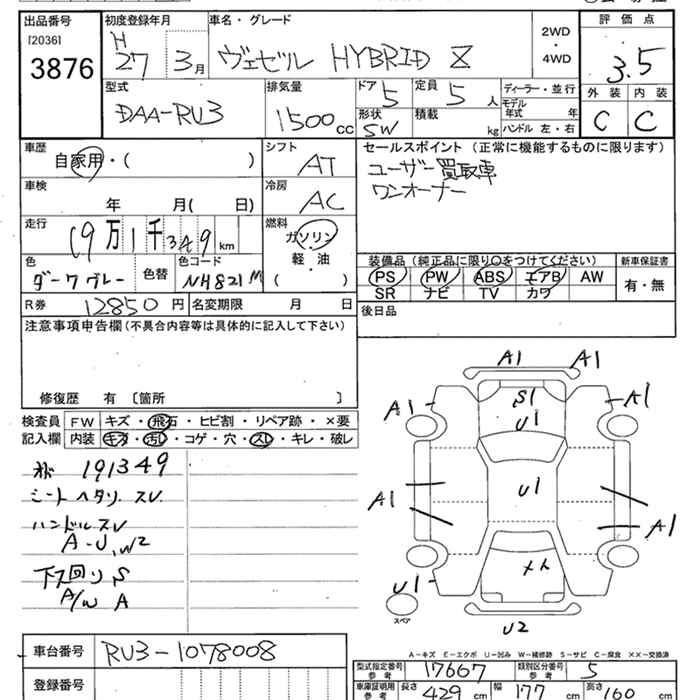 出品番号 初度登録年月 車名・グレード 評価点
[2036]
3876 H 27 3月 ヴェゼル HYBRID Z 2WD・4WD 3.5
型式 排気量 ドア 定員 ディーラー・並行 外装 内装
DAA-RU3 1500cc 5 5人 モデル年式 年 C C
形状 積載 ハンドル 左・右
SW kg
車歴 シフト セールスポイント (正常に機能するものに限ります)
自家用・( ) AT ユーザー買取車
ワンオーナー
車検 冷房
年 月( 日) AC
走行 燃料
19万1千349km ガソリン・軽・油 ( )
装備品 (純正品に限り○をつけてください) 新車保証書
色 色替 色コード PS PW ABS エアB AW 有・無
ダークグレー NH821M SR ナビ TV カワ
R券 12850円 名変期限 月 日 後日品
注意事項申告欄 (不具合内容等は具体的に記入して下さい)
修復歴 有 〔箇所 〕
検査員 FW キズ・飛石・ヒビ割・リペア跡・×要
記入欄 内装 キズ・汚し・コゲ・穴・スレ・キレ・破レ
191349
シートヘタリ.スレ
ハンドルスレ
A-U,W2
下ス回り S
A/W A
A1 A1
S1
A1 U1 A1
A1 U1 A1
U1
スペア
U2
A-キズ E-エクボ U-凹み W-補修跡 S-サビ C-腐食 ××-交換済
車台番号 RU3-1078008
型式指定番号 参考 17667 類別区分番号 参考 5
登録番号
車庫証明用 参考 長さ 429cm 幅 177cm 高さ 160cm